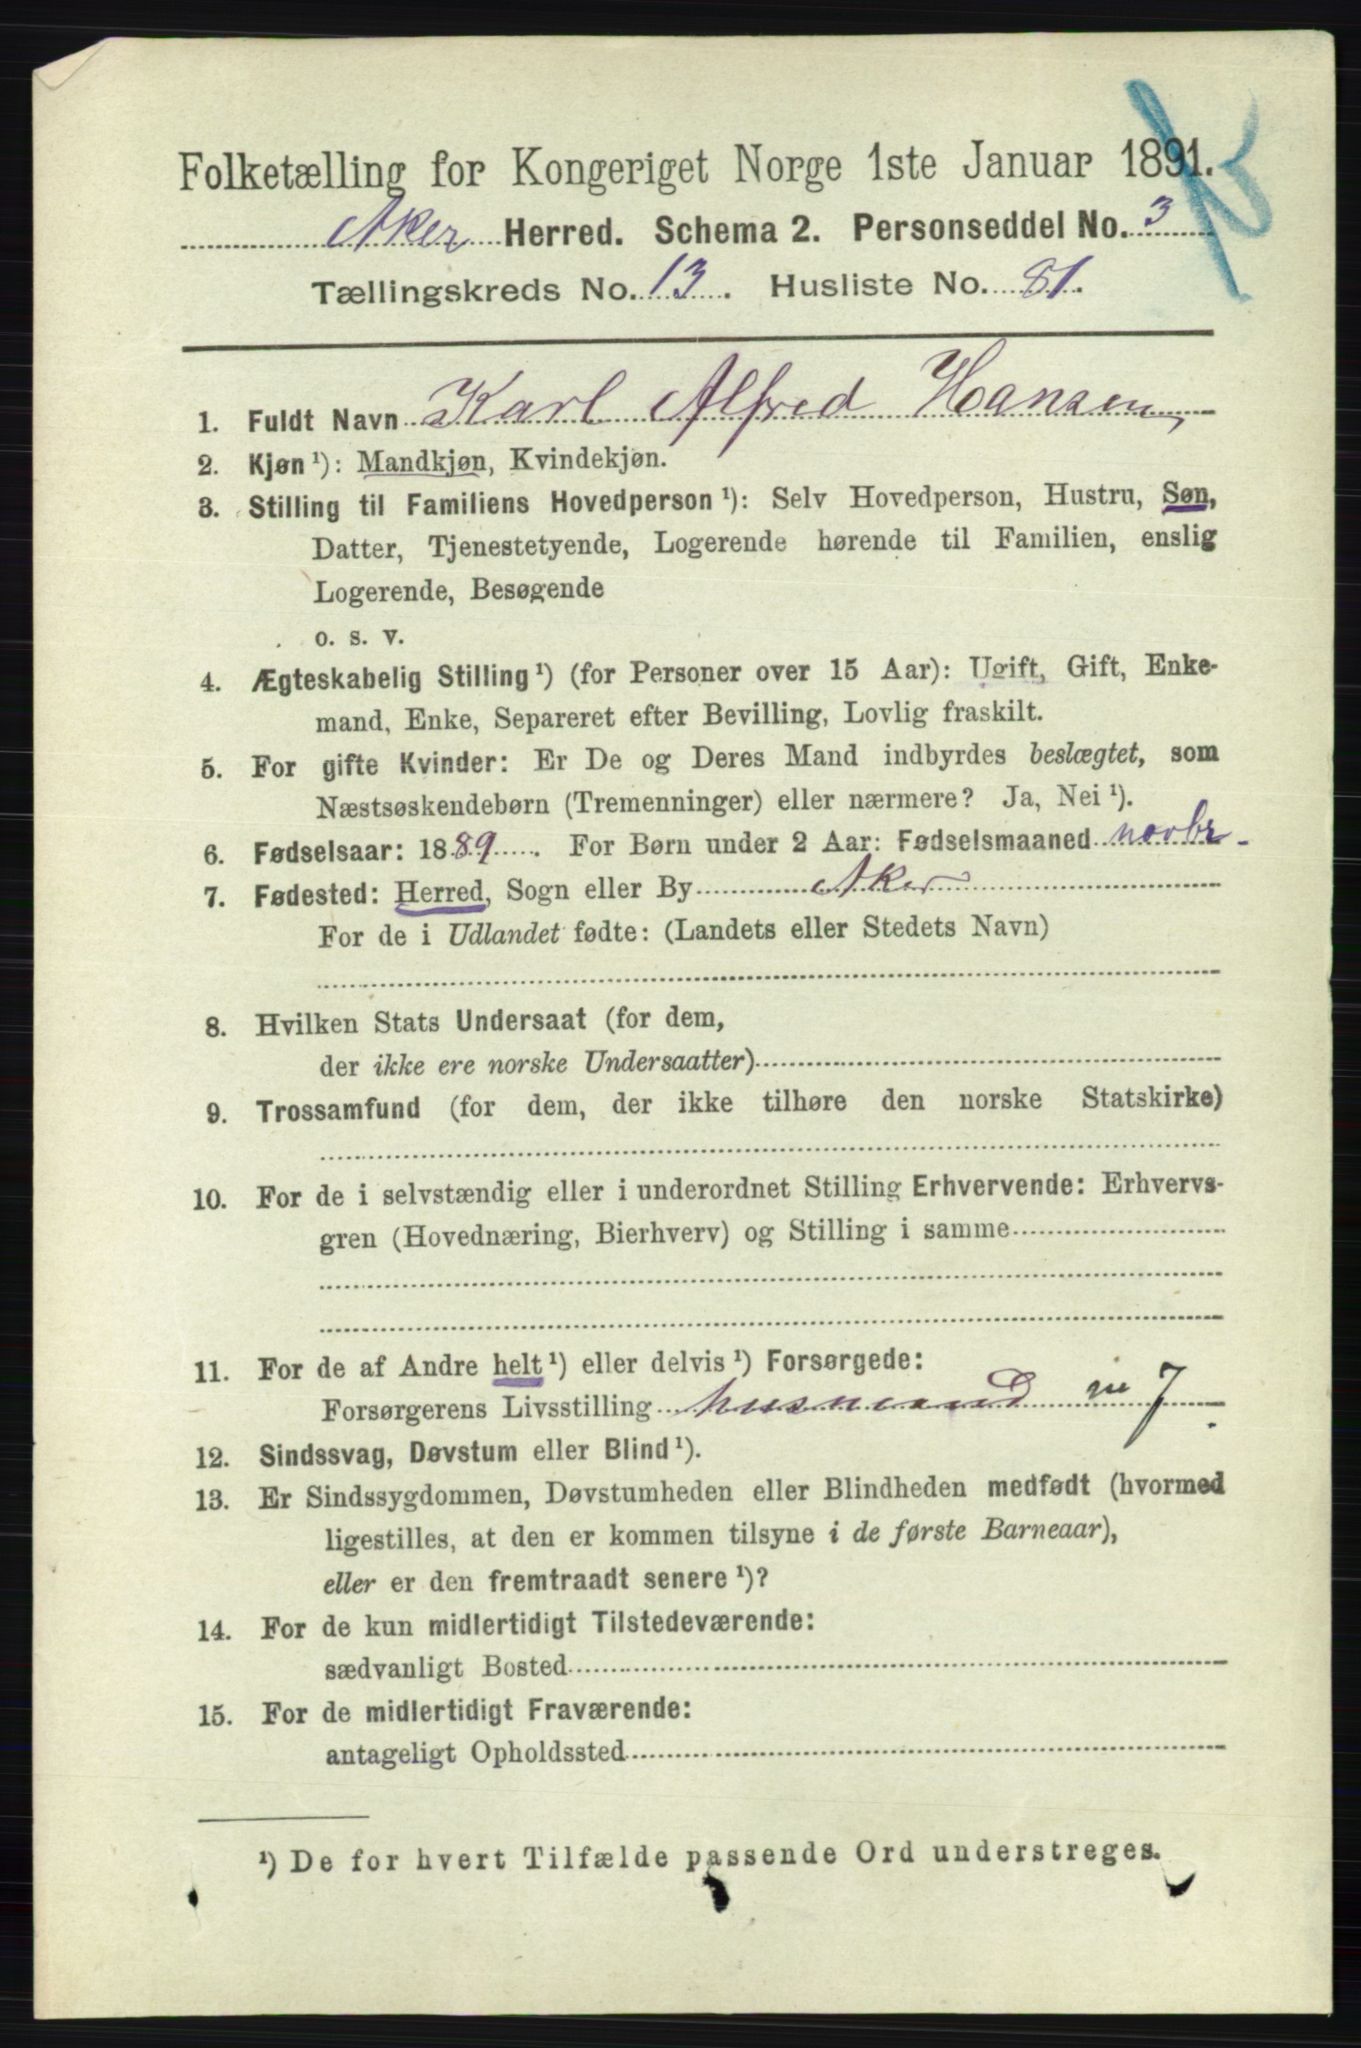 Folketælling for Kongeriget Norge 1ste Januar 1891.
Aker Herred. Schema 2. Personseddel No. 3
Tællingskreds No. 13. Husliste No. 81.
1. Fuldt Navn Karl Alfred Hansen,
2. Kjøn ¹): Mandkjøn, Kvindekjøn.
3. Stilling til Familiens Hovedperson ¹): Selv Hovedperson, Hustru, Søn,
Datter, Tjenestetyende, Logerende hørende til Familien, enslig
Logerende, Besøgende
o. s. v.
4. Ægteskabelig Stilling ¹) (for Personer over 15 Aar): Ugift, Gift, Enke-
mand, Enke, Separeret efter Bevilling, Lovlig fraskilt.
5. For gifte Kvinder: Er De og Deres Mand indbyrdes beslægtet, som
Næstsøskendebørn (Tremenninger) eller nærmere? Ja, Nei ¹).
6. Fødselsaar: 1889. For Børn under 2 Aar: Fødselsmaaned novbr.
7. Fødested: Herred, Sogn eller By Aker
For de i Udlandet fødte: (Landets eller Stedets Navn)
8. Hvilken Stats Undersaat (for dem,
der ikke ere norske Undersaatter)
9. Trossamfund (for dem, der ikke tilhøre den norske Statskirke)
10. For de i selvstændig eller i underordnet Stilling Erhvervende: Erhvervs-
gren (Hovednæring, Bierhverv) og Stilling i samme
11. For de af Andre helt ¹) eller delvis ¹) Forsørgede:
Forsørgerens Livsstilling husmand m 7.
12. Sindssvag, Døvstum eller Blind ¹).
13. Er Sindssygdommen, Døvstumheden eller Blindheden medfødt (hvormed
ligestilles, at den er kommen tilsyne i de første Barneaar),
eller er den fremtraadt senere ¹)?
14. For de kun midlertidigt Tilstedeværende:
sædvanligt Bosted
15. For de midlertidigt Fraværende:
antageligt Opholdssted
¹) De for hvert Tilfælde passende Ord understreges.